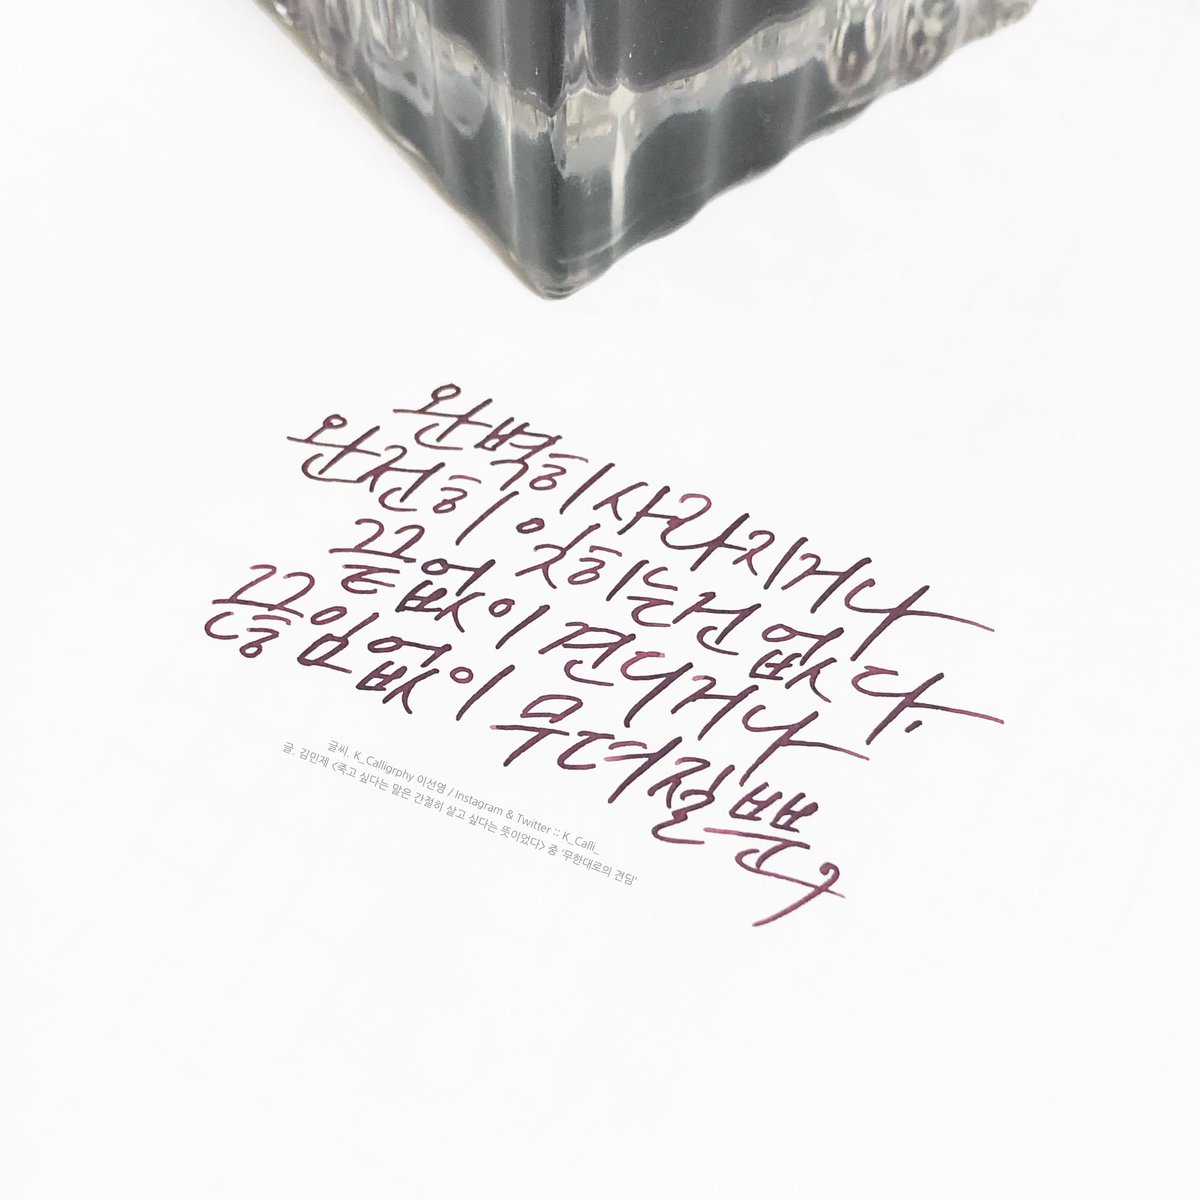 완벽히 사라지거나
완전히 잊히는 건 없다.
끝없이 견디거나
끊임없이 무뎌질 뿐,
글씨. K_Calligrphy 이선영 / Instagram & Twitter :: K_Calli_
글. 김민제 <죽고 싶다는 말은 간절히 살고 싶다는 뜻이었다> 중 '무한대로의 견딤'